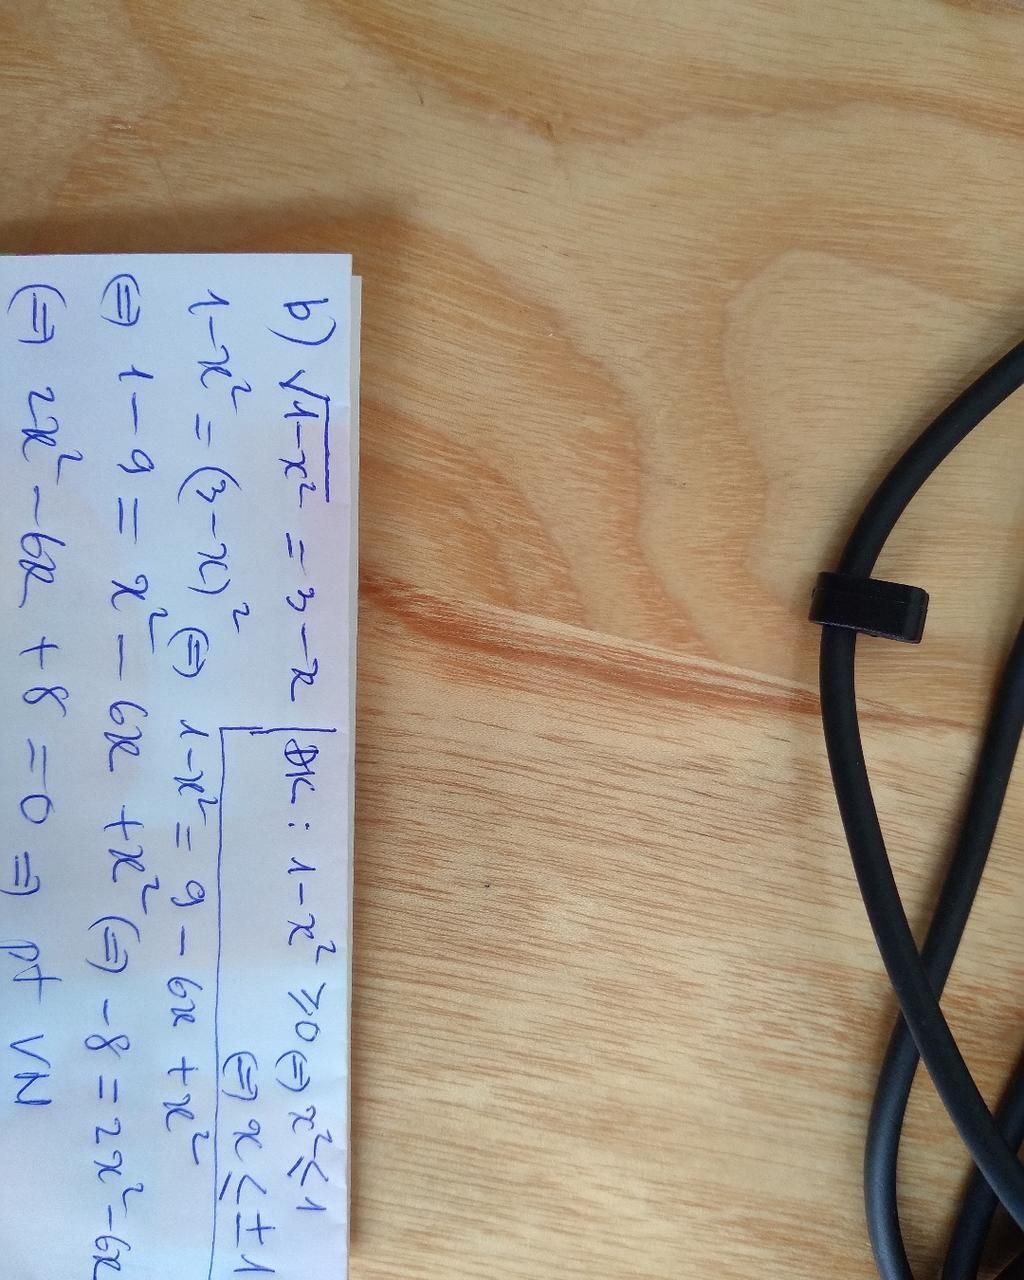 b) √1-x² = 3-x | ĐK: 1-x² ≥ 0 ⇔ x² ≤ 1
⇔ x ≤ ±1
1-x² = (3-x)² ⇔ 1-x² = 9 - 6x + x²
⇔ 1 - 9 = x² - 6x + x² ⇔ -8 = 2x² - 6x
⇔ 2x² - 6x + 8 = 0 ⇒ pt VN